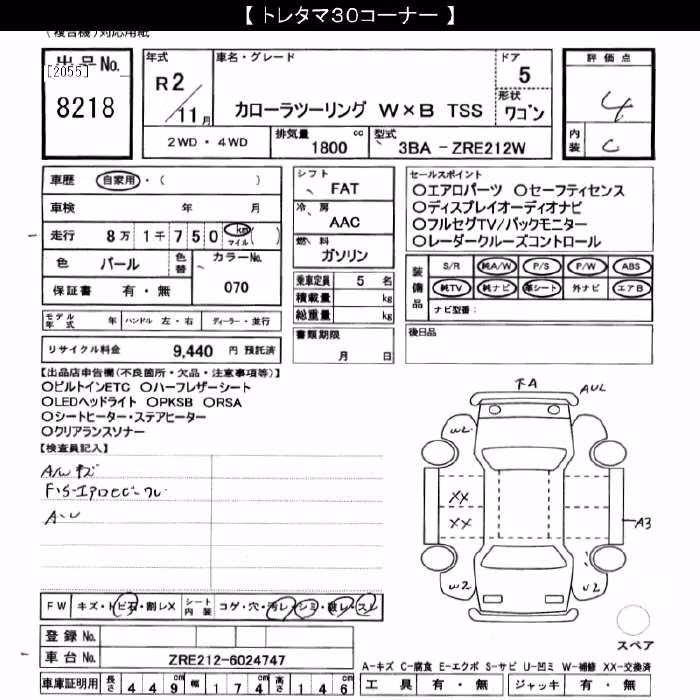 【 トレタマ30コーナー 】
(複合機)対応用紙
出品No.
[2055]
8218
年式
R2/11月
車名・グレード
カローラツーリング W×B TSS
ドア
5
形状
ワゴン
評価点
4
内装
C
2WD・4WD
排気量
1800 cc
型式
3BA - ZRE212W
車歴 自家用・( )
車検 年 月
走行 8万1千750 km マイル ( )
色 パール 色替 カラーNo. 070
保証書 有・無
シフト
FAT
冷房
AAC
燃料
ガソリン
乗車定員 5 名
積載量 kg
総重量 kg
セールスポイント
○エアロパーツ ○セーフティセンス
○ディスプレイオーディオナビ
○フルセグTV/バックモニター
○レーダークルーズコントロール
装備品
S/R 純A/W P/S P/W ABS
純TV 純ナビ 革シート 外ナビ エアB
ナビ型番:
モデル年式 年 ハンドル 左・右 ディーラー・並行
リサイクル料金 9,440 円 預託済
書類期限
月 日
後日品
【出品店申告欄(不良箇所・欠品・注意事項等)】
○ビルトインETC ○ハーフレザーシート
○LEDヘッドライト ○PKSB ○RSA
○シートヒーター・ステアヒーター
○クリアランスソナー
【検査員記入】
A/Wキズ
A-U
下A
AUL
W2
XX
XX
A3
W2
U2
FW キズ・トビ石・割レX シート内装 コゲ・穴・汚レ・シミ・破レ・スレ
登録No.
車台No. ZRE212-6024747
スペア
A-キズ C-腐食 E-エクボ S-サビ U-凹ミ W-補修 XX-交換済
車庫証明用 長さ 449 幅 174 高さ 146
工具 有・無 ジャッキ 有・無